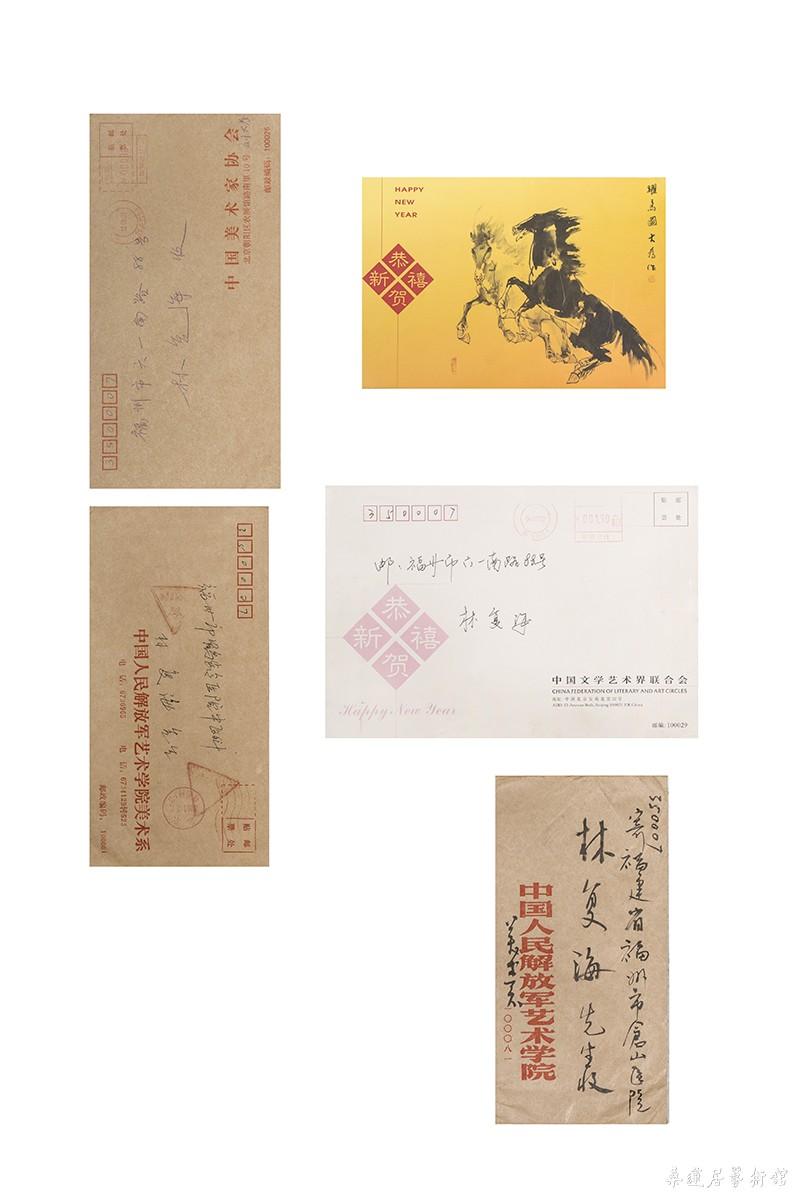 350007
福州市六一南路88号
林复海 收
中国美术家协会
北京朝阳区农展馆南里10号
邮政编码：100026
HAPPY
NEW
YEAR
恭
新 禧
贺
跃马图 大为作
350007
林复海 先生
中国人民解放军艺术学院美术系
邮政编码：100081
贴 邮
票 处
350007
贴 邮
票 处
邮：福州市六一南路88号
林复海
恭
新 禧
贺
Happy New Year
中国文学艺术界联合会
CHINA FEDERATION OF LITERARY AND ART CIRCLES
邮编：100029
350007
寄福建省福州市仓山医院
林复海先生收
中国人民解放军艺术学院
美术系
一〇〇〇八一